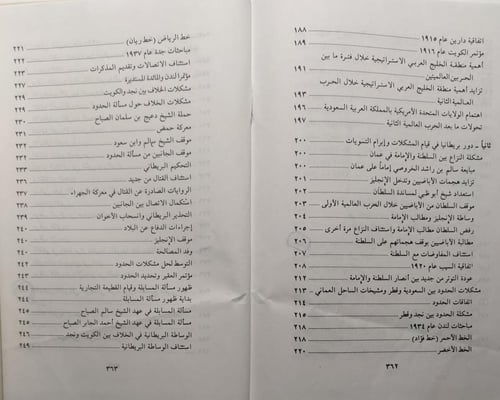 اتفاقية دارين عام ١٩١٥ ١٨٨
مؤتمر الكويت عام ١٩١٦ ١٨٩
أهمية منطقة الخليج العربي الاستراتيجية خلال فترة ما بين
الحربين العالميتين ١٩١
تزايد أهمية منطقة الخليج العربي الاستراتيجية خلال الحرب
العالمية الثانية ١٩٣
اهتمام الولايات المتحدة الأمريكية بالمملكة العربية السعودية ١٩٦
تحولات ما بعد الحرب العالمية الثانية ١٩٧
ثانياً ـ دور بريطانيا في قيام المشكلات وإبرام التسويات ٢٠٠
مشكلة النزاع بين السلطنة والإمامة في عمان ٢٠٠
مبايعة سالم بن راشد الخروصي إماماً على عمان ٢٠٠
تزايد هجمات الأباضيين وتدخل الإنجليز ٢٠١
استعداد شيخ أبو ظبي لمساندة السلطان ٢٠٢
موقف السلطان من الأباضيين خلال الحرب العالمية الأولى ٢٠٣
وساطة الإنجليز ومطالب الإمامة ٢٠٤
رفض السلطان مطالب الإمامة واستئناف النزاع مرة أخرى ٢٠٥
مطالبة الأباضيين بوقف هجماتهم على السلطنة ٢٠٦
استئناف المفاوضات مع السلطنة ٢٠٧
اتفاقية السيب عام ١٩٢٠ ٢٠٨
عودة التوتر من جديد بين أنصار السلطنة والإمامة ٢١٢
مشكلات الحدود بين السعودية وقطر ومشيخات الساحل العماني ٢١٣
اتفاقات الحدود ٢١٤
مشكلة الحدود بين نجد وقطر ٢١٦
مباحثات لندن عام ١٩٣٤ ٢١٧
الخط الأحمر (خط فؤاد) ٢١٨
الخط الأخضر ٢٢٠
٣٦٢
خط الرياض (خط ريان) ٢٢١
مباحثات جدة عام ١٩٣٧ ٢٢١
استئناف الاتصالات وتقديم المذكرات ٢٢٣
مؤتمر لندن والمائدة المستديرة ٢٢٧
مشكلات الخلاف بين نجد والكويت ٢٢٩
مشكلات الخلاف حول مسألة الحدود ٢٢٩
حملة الشيخ دعيج بن سلمان الصباح ٢٣٠
معركة حمض ٢٣١
موقف الشيخ سالم وابن سعود ٢٣٢
موقف الجانبين من مسألة الحدود ٢٣٥
التحكيم البريطاني ٢٣٦
استئناف القتال من جديد ٢٣٧
الروايات الصادرة عن القتال في معركة الجهراء
استكمال الاتصال بين الجانبين ٢٣٨
التحذير البريطاني وانسحاب الأخوان ٢٣٩
إجراءات الدفاع عن البلاد ٢٤٠
موقف الإنجليز ٢٤٠
وفد المصالحة ٢٤٠
التوسط لحل مشكلات الحدود ٢٤٢
مؤتمر العقير وتحديد الحدود ٢٤٣
ظهور مسألة المسابلة وقيام القطيعة التجارية ٢٤٤
بداية ظهور مسألة المسابلة ٢٤٤
مسألة المسابلة في عهد الشيخ سالم الصباح ٢٤٥
مسألة المسابلة في عهد الشيخ أحمد الجابر الصباح ٢٤٥
الوساطة البريطانية في الخلاف بين الكويت ونجد ٢٤٦
استئناف الوساطة البريطانية ٢٤٩
٣٦٣